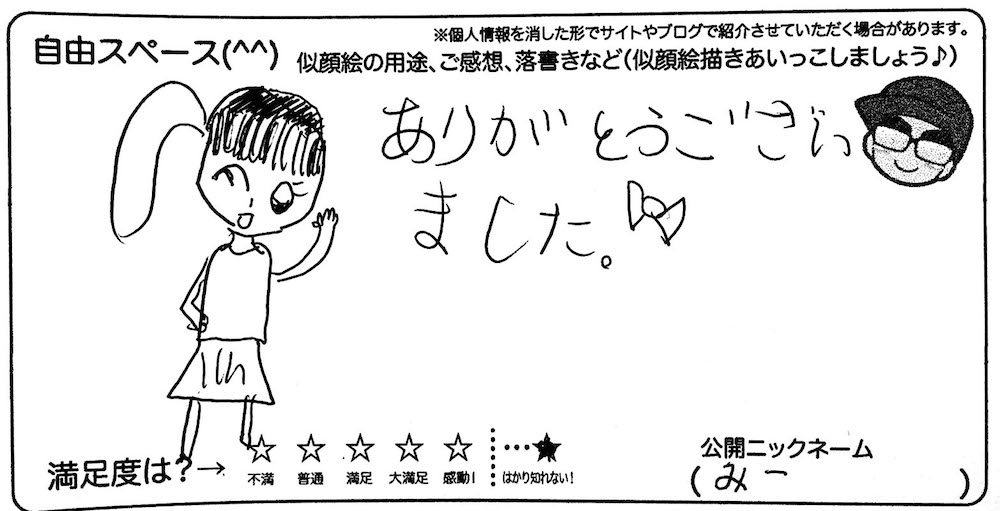 自由スペース(^^)
※個人情報を消した形でサイトやブログで紹介させていただく場合があります。
似顔絵の用途、ご感想、落書きなど(似顔絵描きあいっこしましょう♪)
ありがとうございっ
ました。
満足度は?→
☆ ☆ ☆ ☆ ☆ …★
不満 普通 満足 大満足 感動! はかり知れない!
公開ニックネーム
(みー)